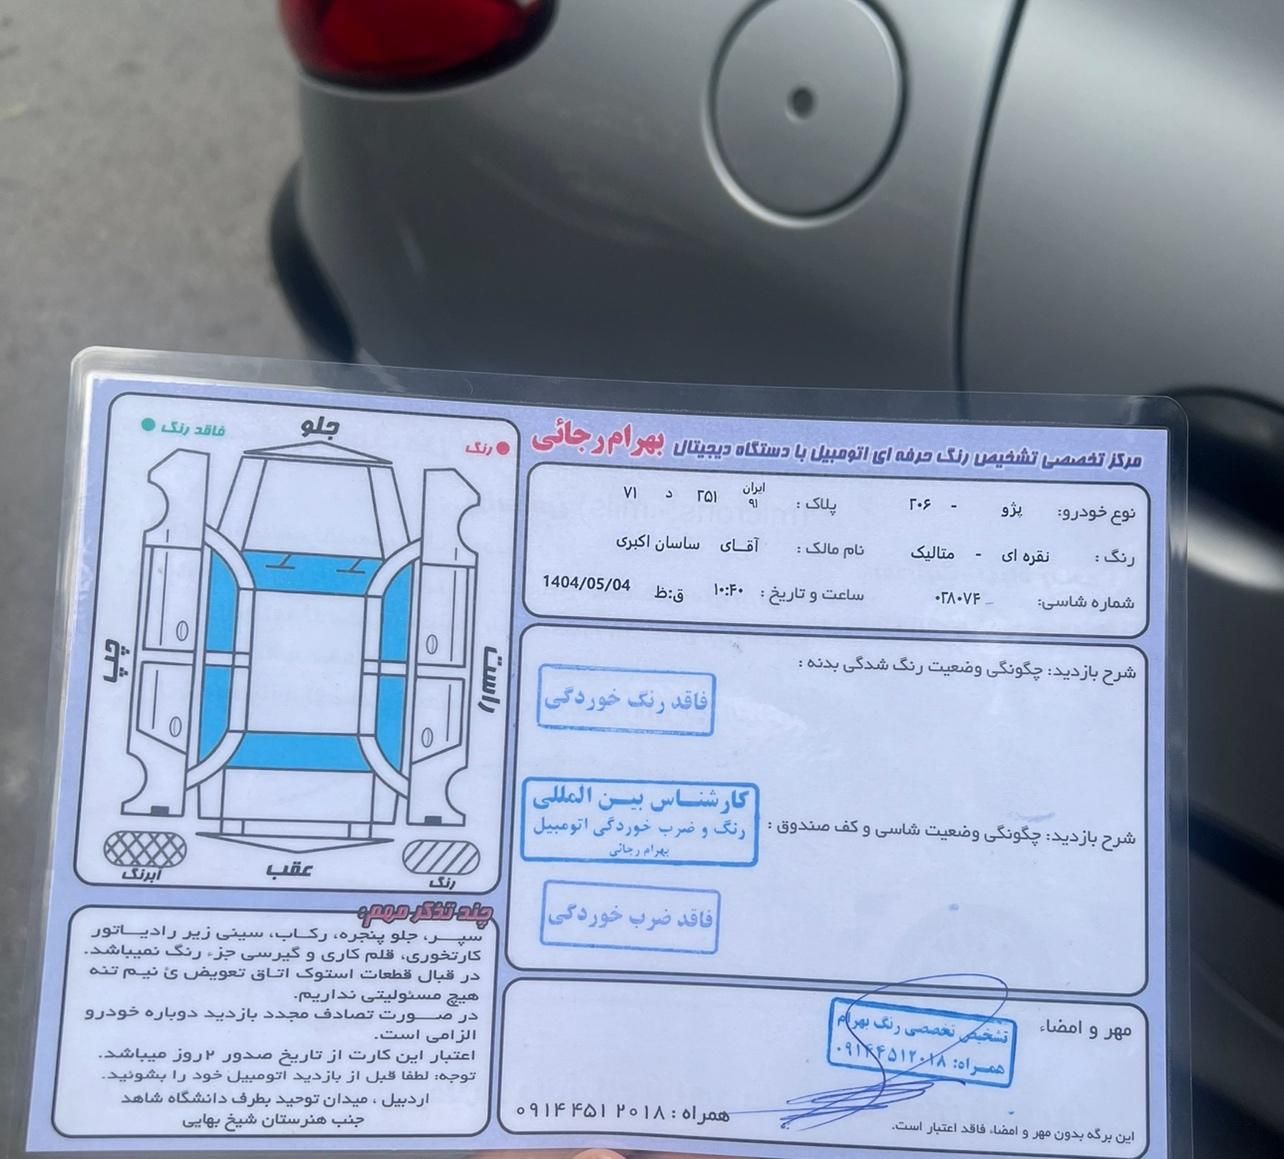 مرکز تخصصی تشخیص رنگ حرفه ای اتومبیل با دستگاه دیجیتال بهرام رجائی
نوع خودرو: پژو - ۲۰۶ پلاک : ایران ۹۱ ۲۵۱ د ۷۱
رنگ : نقره ای - متالیک نام مالک : آقـای ساسان اکبری
شماره شاسی: ۰۲۸۰۷۴ ساعت و تاریخ : ۱۰:۴۰ ق:ظ 1404/05/04
شرح بازدید: چگونگی وضعیت رنگ شدگی بدنه :
فاقد رنگ خوردگی
شرح بازدید: چگونگی وضعیت شاسی و کف صندوق :
کارشناس بین المللی
رنگ و ضرب خوردگی اتومبیل
بهرام رجائی
فاقد ضرب خوردگی
مهر و امضاء
تشخیص تخصصی رنگ بهرام
همراه: ۰۹۱۴۴۵۱۲۰۱۸
همراه : ۰۹۱۴ ۴۵۱ ۲۰۱۸
این برگه بدون مهر و امضاء، فاقد اعتبار است.
رنگ
جلو
فاقد رنگ
راست
چپ
رنگ
عقب
آبرنگ
چند تذکر مهم:
سپـر، جلو پنجره، رکاب، سینی زیر رادیـاتور
کارتخوری، قلم کاری و گیرسی جزء رنگ نمیباشد.
در قبال قطعات استوک اتاق تعویض ئ نیم تنه
هیچ مسئولیتی نداریم.
در صـورت تصادف مجدد بازدید دوباره خودرو
الزامی است.
اعتبار این کارت از تاریخ صدور ۲ روز میباشد.
توجه: لطفا قبل از بازدید اتومبیل خود را بشوئید.
اردبیل ، میدان توحید بطرف دانشگاه شاهد
جنب هنرستان شیخ بهایی